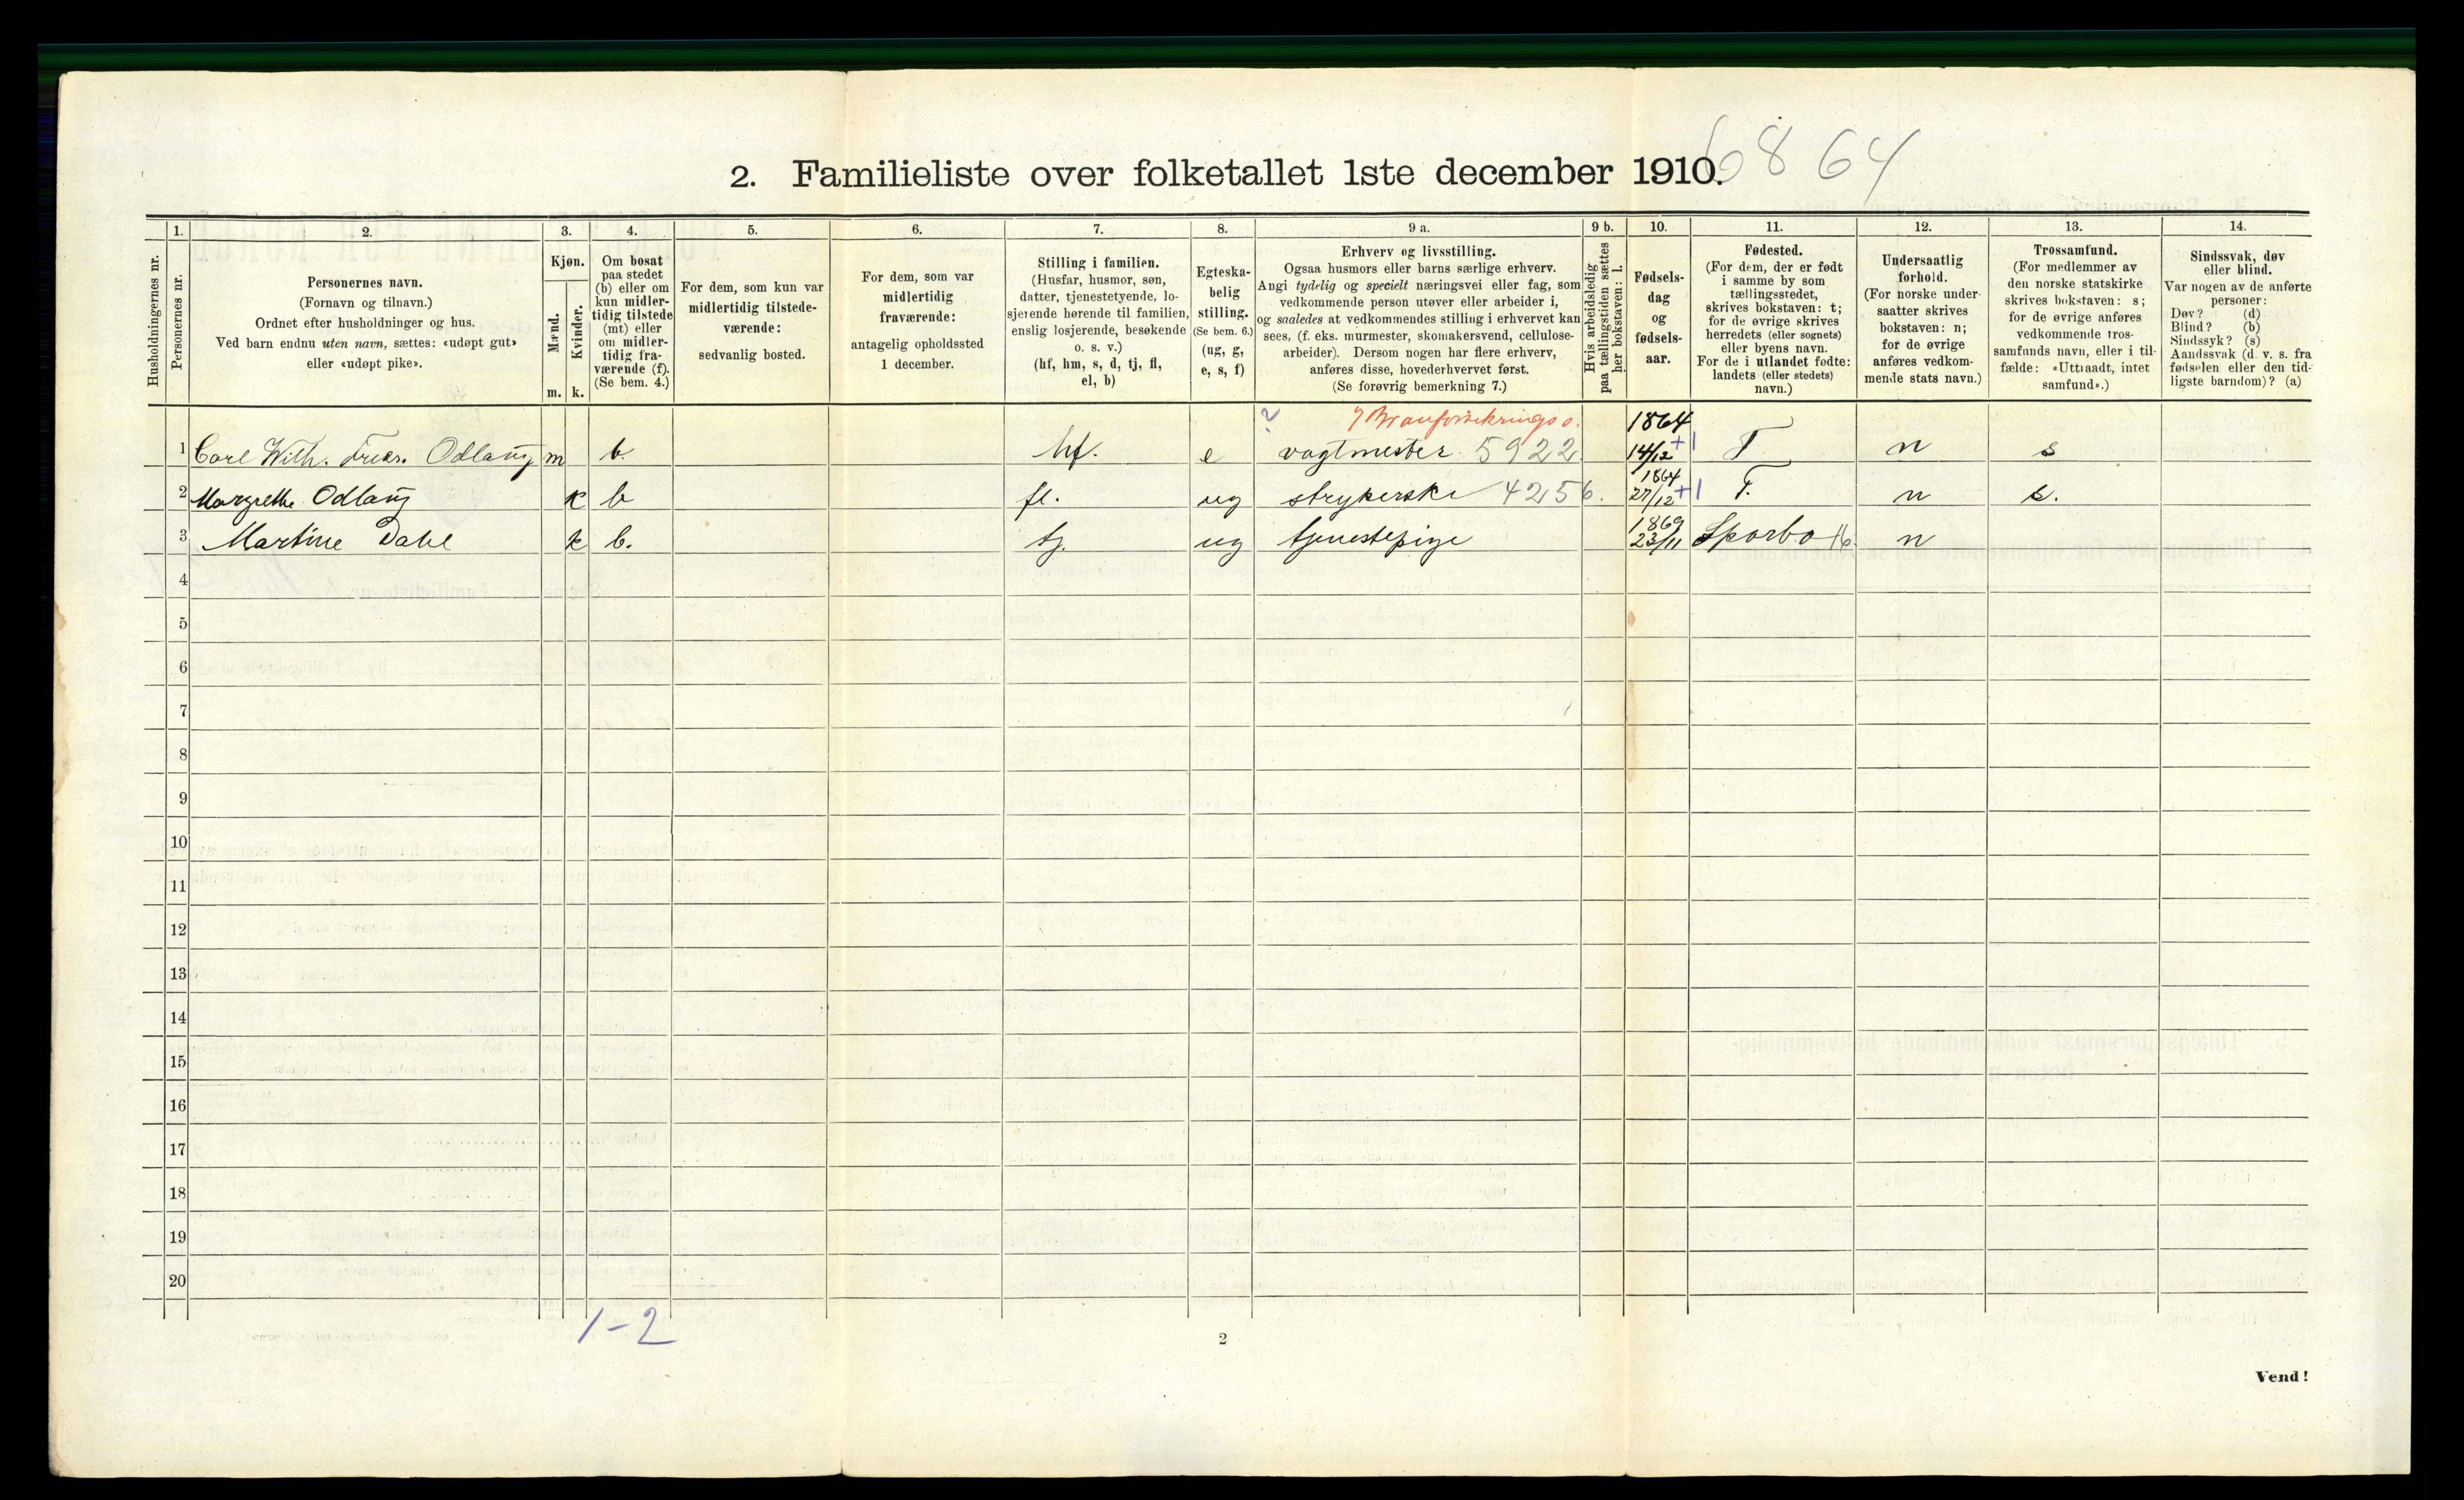 6864
2. Familieliste over folketallet 1ste december 1910.
Husholdningernes nr.
1.
Personernes nr.
2.
Personernes navn.
(Fornavn og tilnavn.)
Ordnet efter husholdninger og hus.
Ved barn endnu uten navn, sættes: «udøpt gut»
eller «udøpt pike».
3.
Kjøn.
Mænd.
Kvinder.
m. k.
4.
Om bosat
paa stedet
(b) eller om
kun midler-
tidig tilstede
(mt) eller
om midler-
tidig fra-
værende (f).
(Se bem. 4.)
5.
For dem, som kun var
midlertidig tilstede-
værende:
sedvanlig bosted.
6.
For dem, som var
midlertidig
fraværende:
antagelig opholdssted
1 december.
7.
Stilling i familien.
(Husfar, husmor, søn,
datter, tjenestetyende, lo-
sjerende hørende til familien,
enslig losjerende, besøkende
o. s. v.)
(hf, hm, s, d, tj, fl,
el, b)
8.
Egteska-
belig
stilling.
(Se bem. 6.)
(ug, g,
e, s, f)
9 a.
Erhverv og livsstilling.
Ogsaa husmors eller barns særlige erhverv.
Angi tydelig og specielt næringsvei eller fag, som
vedkommende person utøver eller arbeider i,
og saaledes at vedkommendes stilling i erhvervet kan
sees, (f. eks. murmester, skomakersvend, cellulose-
arbeider). Dersom nogen har flere erhverv,
anføres disse, hovederhvervet først.
(Se forøvrig bemerkning 7.)
9 b.
Hvis arbeidsledig
paa tællingstiden sættes
her bokstaven: l.
10.
Fødsels-
dag
og
fødsels-
aar.
11.
Fødested.
(For dem, der er født
i samme by som
tællingsstedet,
skrives bokstaven: t;
for de øvrige skrives
herredets (eller sognets)
eller byens navn.
For de i utlandet fødte:
landets (eller stedets)
navn.)
12.
Undersaatlig
forhold.
(For norske under-
saatter skrives
bokstaven: n;
for de øvrige
anføres vedkom-
mende stats navn.)
13.
Trossamfund.
(For medlemmer av
den norske statskirke
skrives bokstaven: s;
for de øvrige anføres
vedkommende tros-
samfunds navn, eller i til-
fælde: «Uttraadt, intet
samfund».)
14.
Sindssvak, døv
eller blind.
Var nogen av de anførte
personer:
Døv? (d)
Blind? (b)
Sindssyk? (s)
Aandssvak (d. v. s. fra
fødselen eller den tid-
ligste barndom)? (a)
? 1864
1 Carl Wilh. Fredr. Odlaug m b. hf. e vagtmester 5922 14/12 +1 T n s
1864
2 Margrethe Odlaug k b fl. ug strykerske 4256. 27/12 +1 T. n s.
1869
3 Martine Dahl k b. tj. ug tjenestepige 23/11 Sparbo 16 n
4
5
6
7
8
9
10
11
12
13
14
15
16
17
18
19
20
1-2
2
Vend!